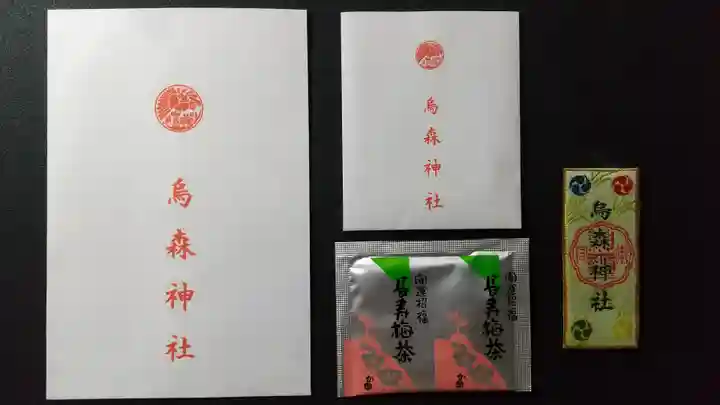 烏森神社
烏森神社
開運招福
長寿梅茶
開運招福
長寿梅茶
烏森神社